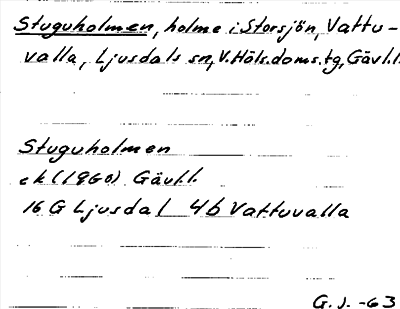 Stuguholmen, holme i Storsjön, Vattu-
valla, Ljusdals sn, V. Häls. doms. tg, Gävl. l.
Stuguholmen
ek (1960) Gävl.l.
16 G Ljusdal 4b Vattuvalla
G. J. -63